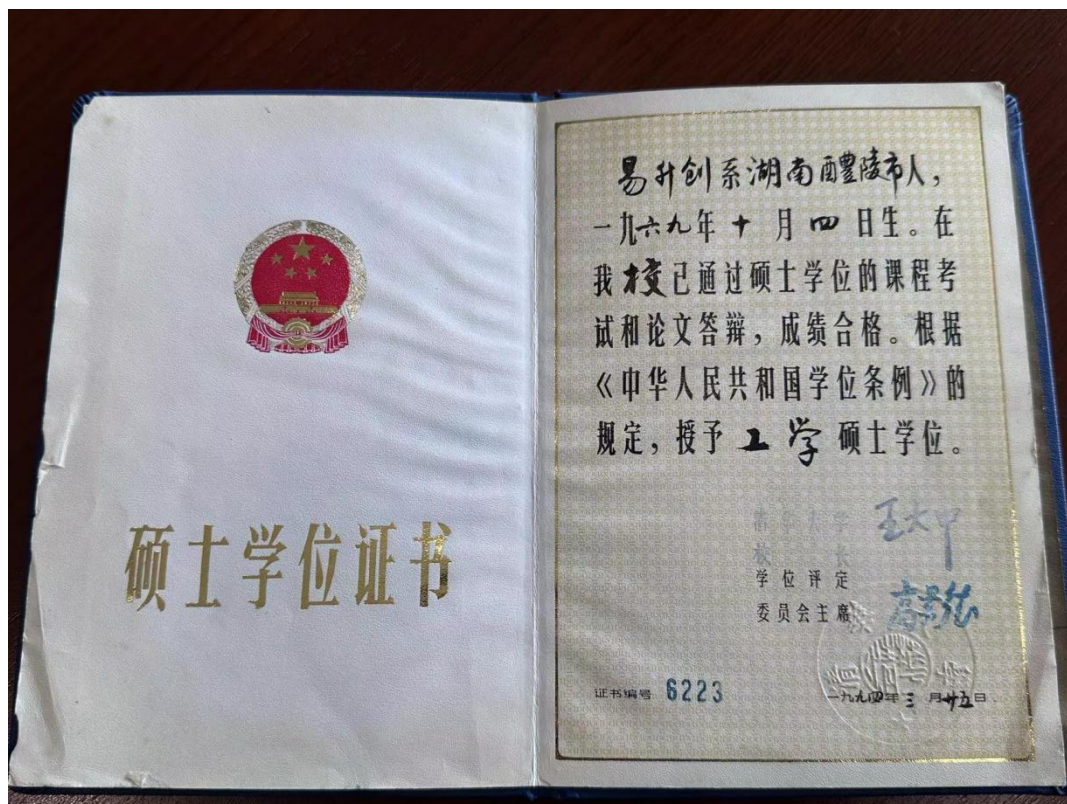 硕士学位证书
易升创系湖南醴陵市人，
一九六九年十月四日生。在
我校已通过硕士学位的课程考
试和论文答辩，成绩合格。根据
《中华人民共和国学位条例》的
规定，授予工学硕士学位。
清华大学
校长
王大中
学位评定
委员会主席
证书编号 6223
一九九四年三月廿五日